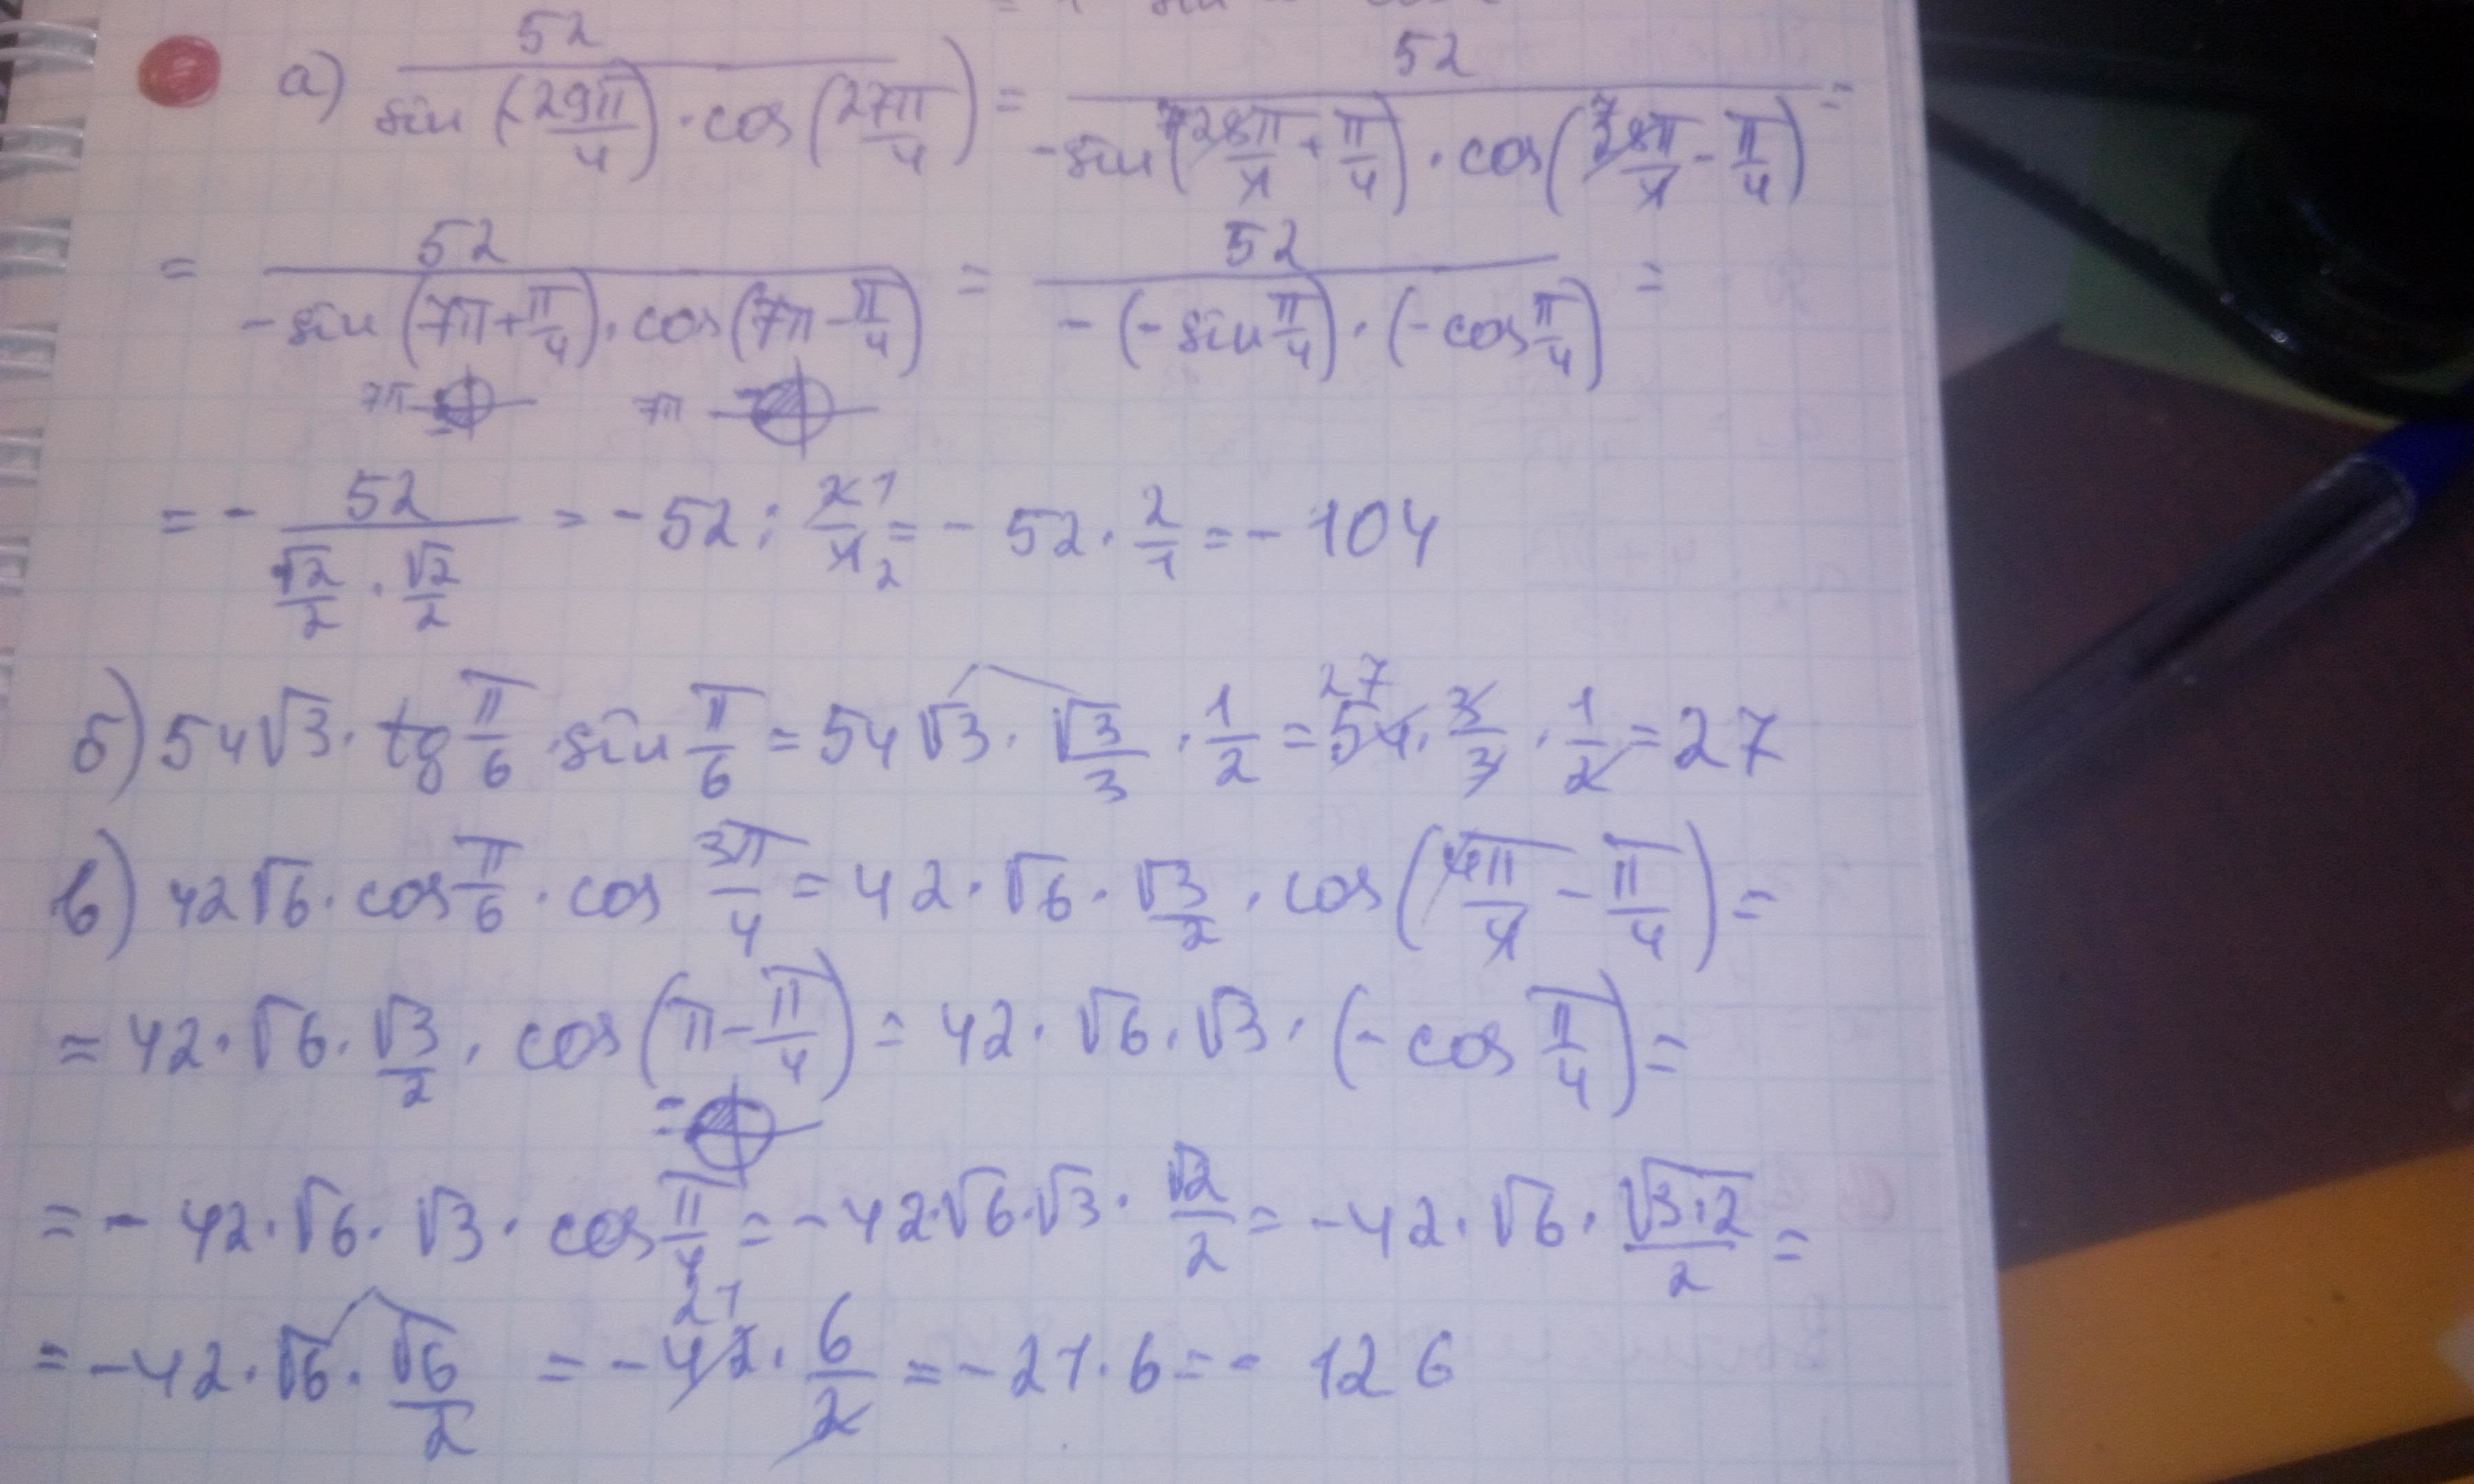 а) 52/(sin(-29π/4)·cos(27π/4)) = 52/(-sin(28π/4+π/4)·cos(28π/4-π/4)) =
= 52/(-sin(7π+π/4)·cos(7π-π/4)) = 52/(-(-sin π/4)·(-cos π/4)) =
7π 7π
= - 52/(√2/2·√2/2) = -52 : 2/4 1/2 = -52·2/1 = -104
б) 54√3·tg π/6·sin π/6 = 54√3·√3/3·1/2 = 54·3/3·1/2 = 27
27
в) 42√6·cos π/6·cos 3π/4 = 42·√6·√3/2·cos(4π/4-π/4) =
= 42·√6·√3/2·cos(π-π/4) = 42·√6·√3·(-cos π/4) =
= -42·√6·√3·cos π/4 = -42·√6·√3·√2/2 = -42·√6·√3·2/2 =
21
= -42·√6·√6/2 = -42·6/2 = -21·6 = -126